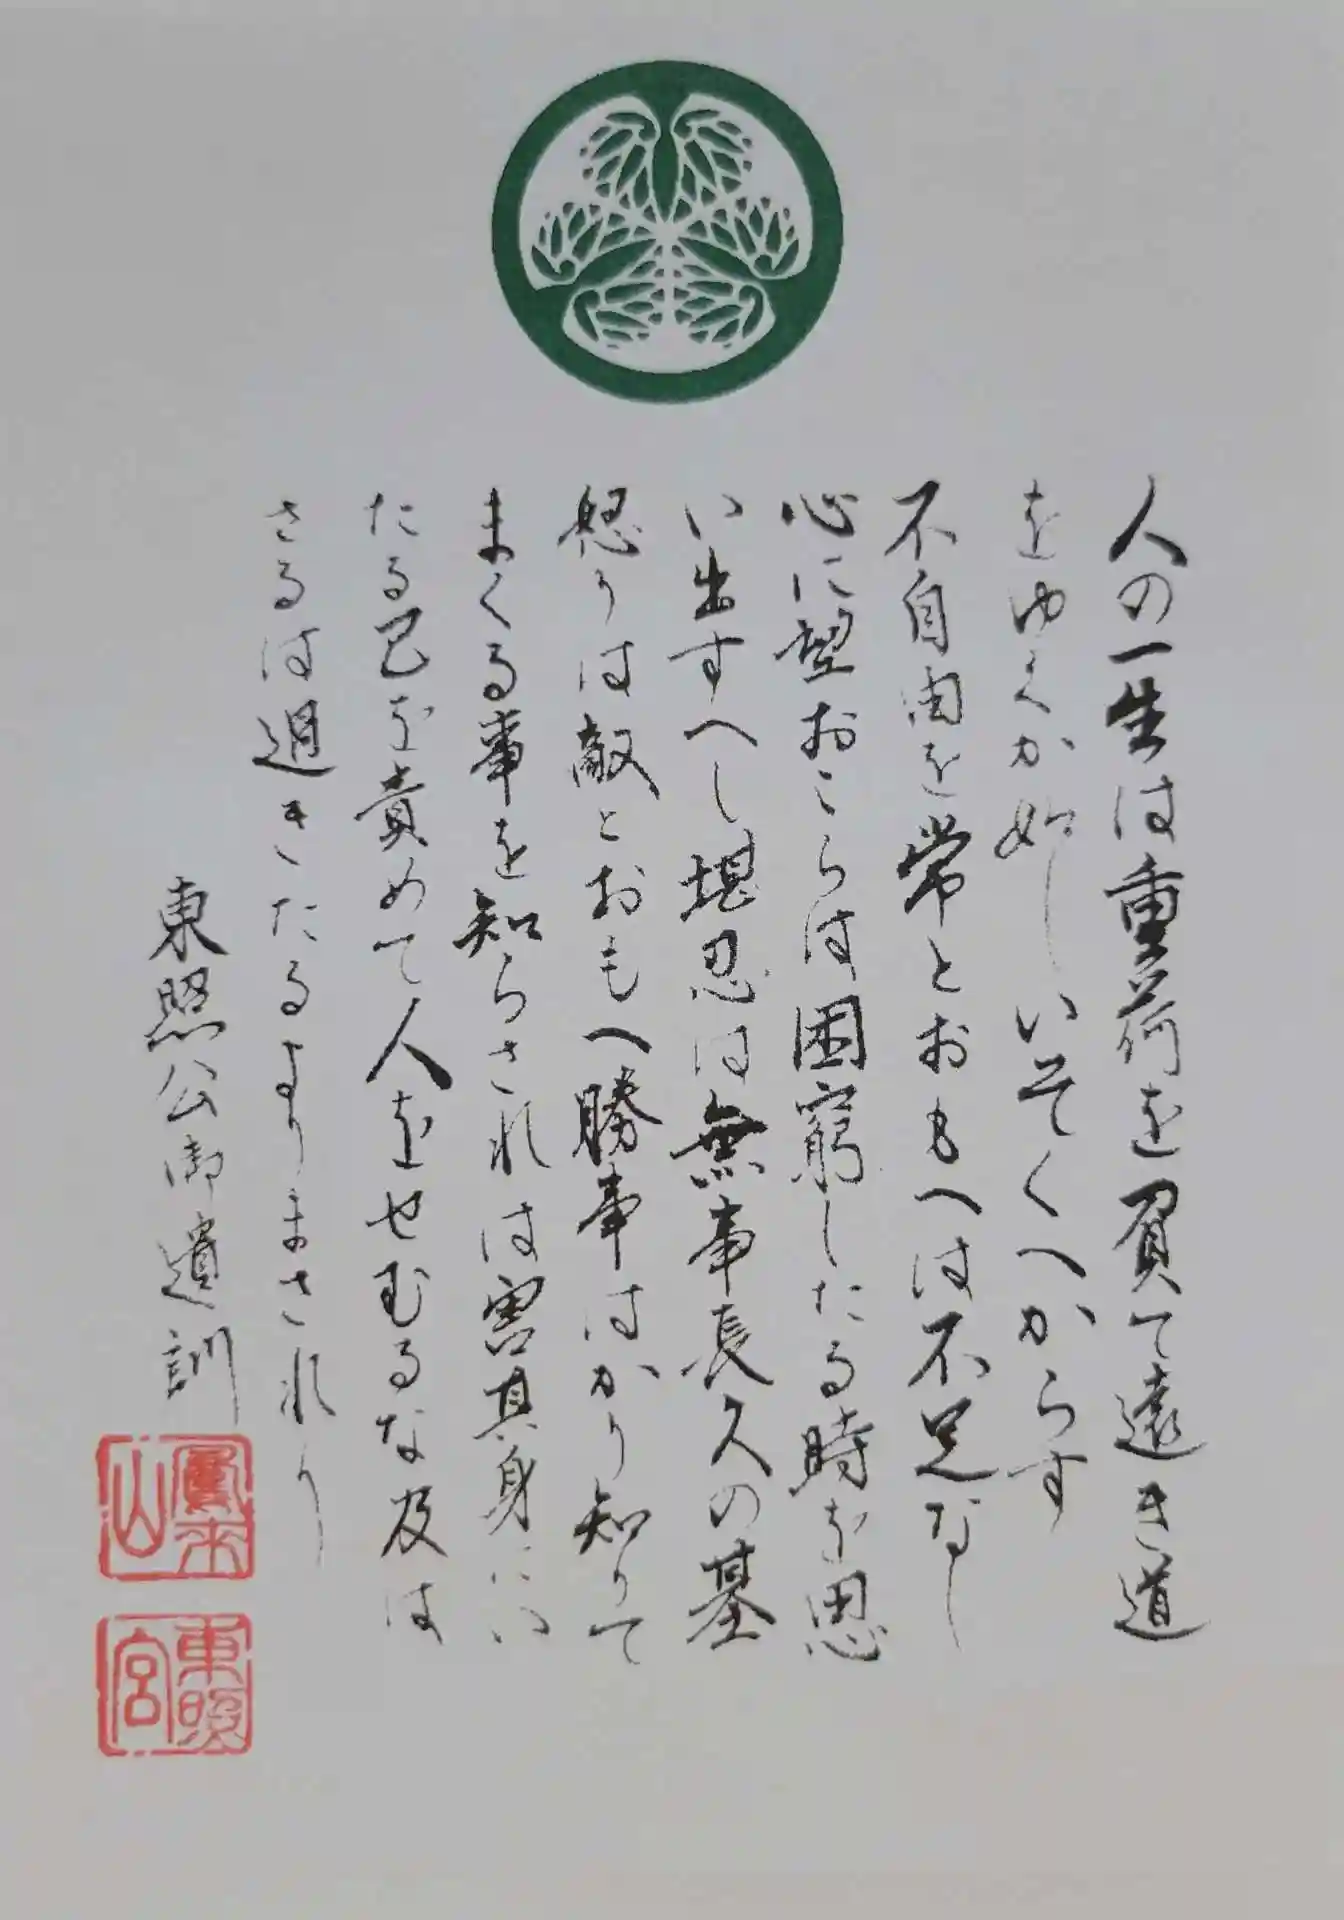 人の一生は重荷を負て遠き道
をゆくか如しいそくへからす
不自由を常とおもへは不足なし
心に望おこらは困窮したる時を思
い出すへし堪忍は無事長久の基
怒りは敵とおもへ勝事はかり知りて
まくる事を知らされは害其身にい
たる己を責めて人をせむるな及は
さるは過きたるよりまされり
東照公御遺訓
鳳来
山
東照
宮